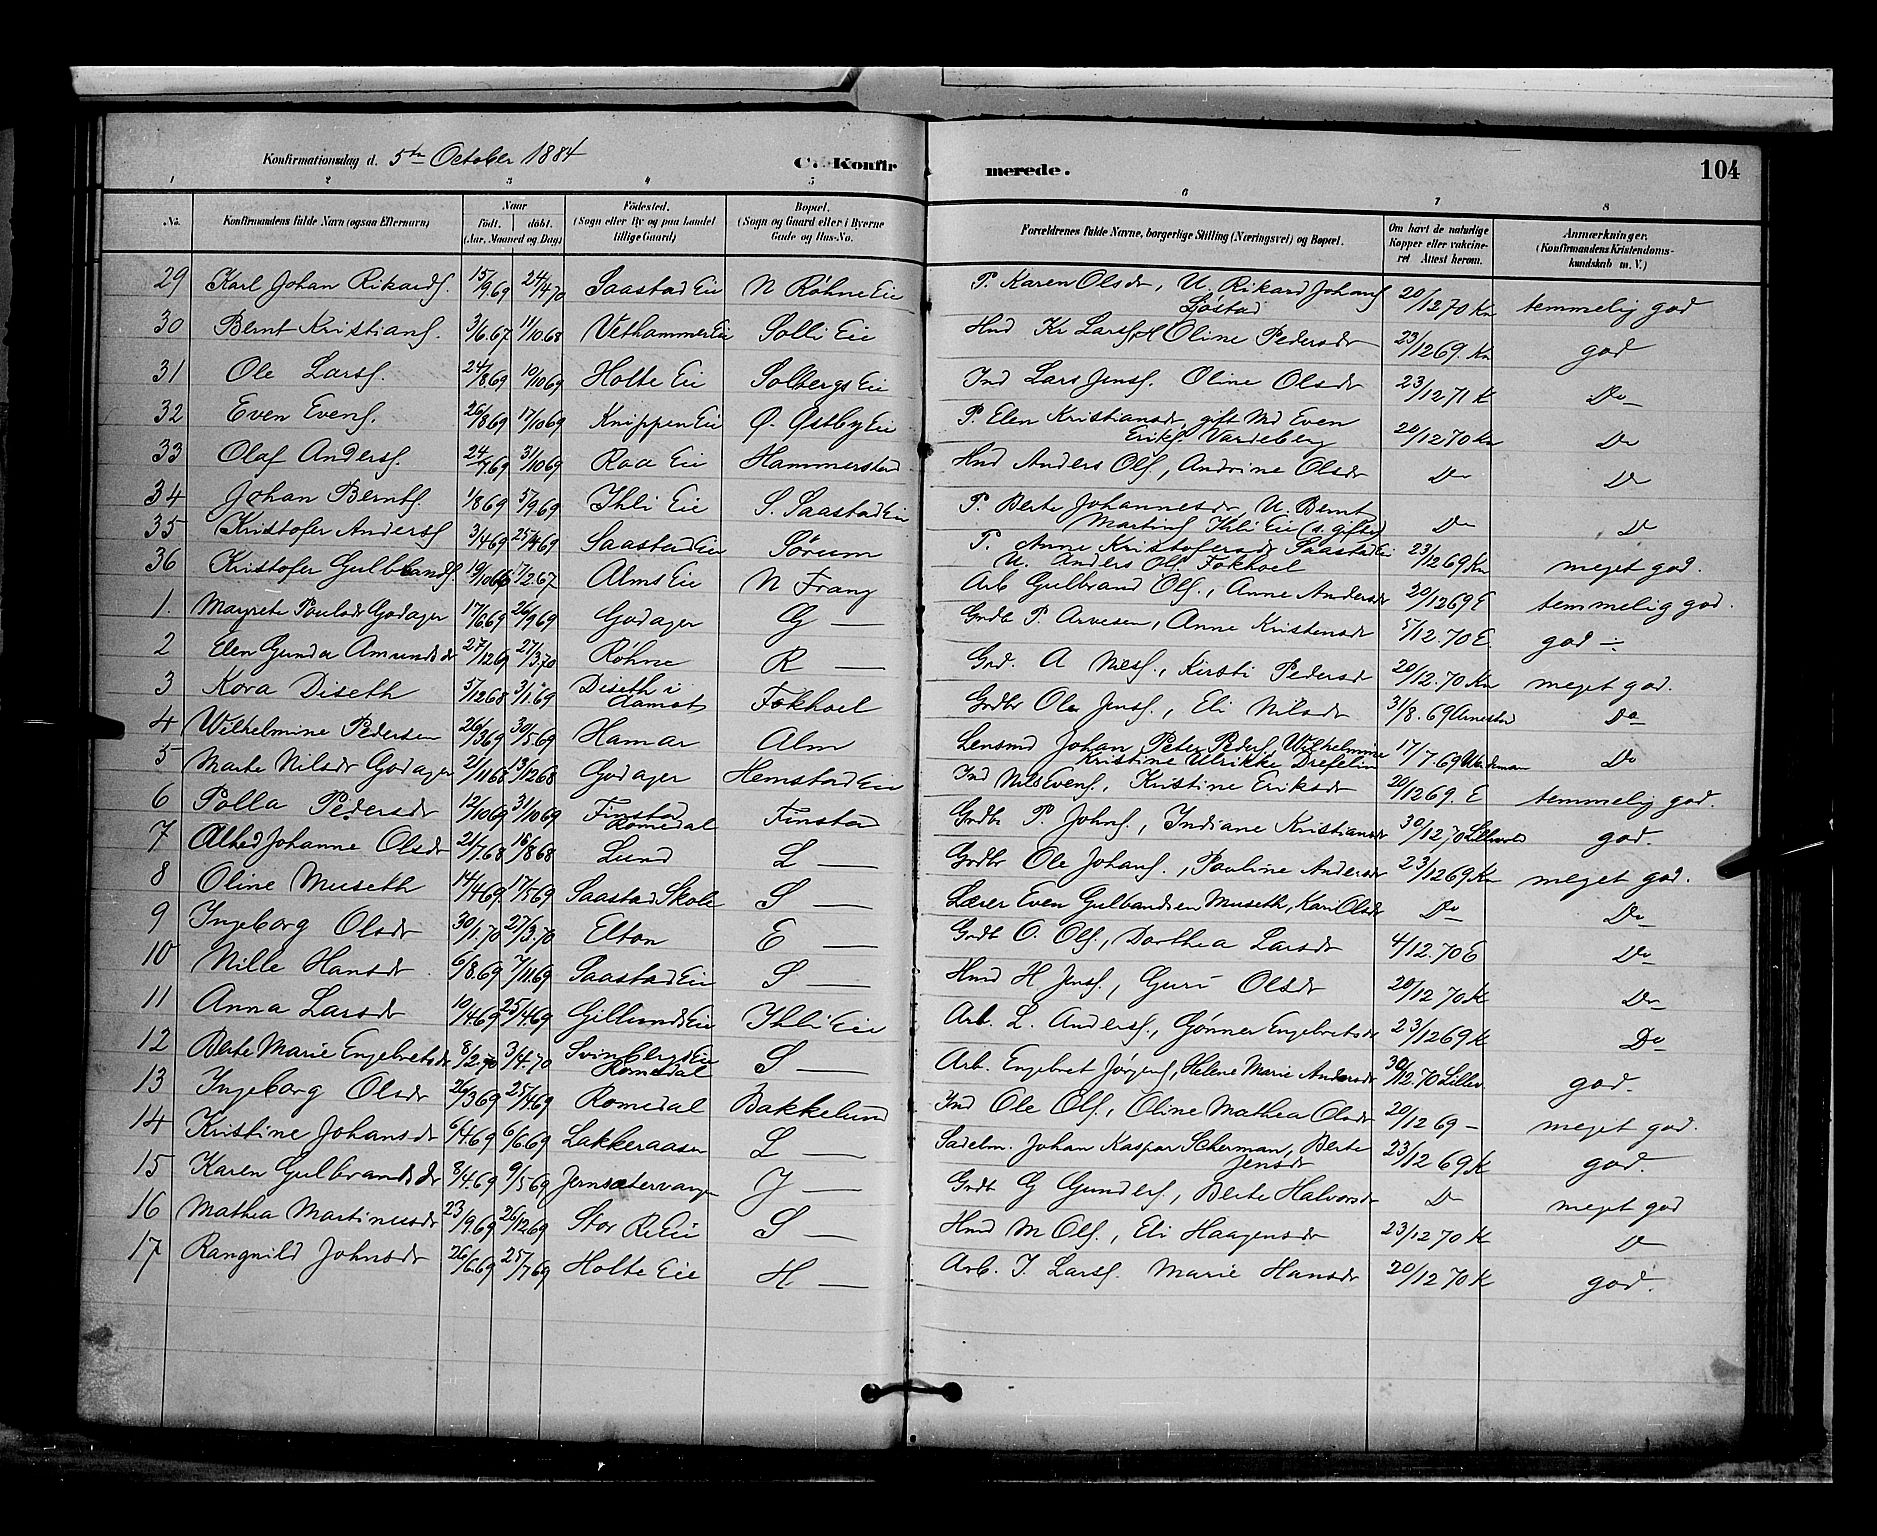 Konfirmationsdag d. 5te October 1884
C. Konfir merede.
104
1 2 3 4 5 6 7 8
No. Konfirmandens fulde Navn (ogsaa Efternavn) Naar født. døbt. (Aar, Maaned og Dag) Fødested. (Sogn eller By og paa Landet tillige Gaard) Bopæl. (Sogn og Gaard eller i Byerne Gade og Hus-No. Forældrenes fulde Navne, borgerlige Stilling (Næringsvei) og Bopæl. Om havt de naturlige Kopper eller vakcineret Attest herom. Anmærkninger. (Konfirmandens Kristendomskundskab m. V.)
29 Karl Johan Rikards. 15/9.69 24/4 70 Saastad Eie N Røhne Eie P. Karen Olsdr, U. Rikard Johans Sjøstad 20/12 70 Kn temmelig god
30 Bernt Kristians. 3/6.67 11/10 68 Vethammer Eie Solli Eie Hmd Kr Lars. Oline Pedersdr 23/12 69. Kn god
31 Ole Lars. 24/8 69 10/10 69 Holte Eie Solbergs Eie Ind Lars Jens. Oline Olsdr 23/12 71 K Do
32 Even Evens. 26/8 69 17/10 69 Knippen Eie Ø. Østby Eie P. Elen Kristiansdr, gift Md Even Eriks. Vardeberg 20/12 70 Kn Do
33 Olaf Anders. 24/7.69 31/10 69 Roa Eie Hammerstad Hmd Anders Ols., Andrine Olsdr Do Do
34 Johan Bernts. 1/8 69 5/9.69 Ihli Eie S. Saastad Eie P. Berte Johannesdr, U. Bernt Martins. Ihli Eie (s. gifted) Do Do
35 Kristofer Anders. 3/4 69 25/4 69 Saastad Eie Sørum P. Anne Kristofersdr Saastad Ei U. Anders Ols. Fokhoel 23/12 69 Kn meget god.
36 Kristofer Gulbrands. 19/10 66 17/2 67 Alms Eie N Frang Arb Gulbrand Ols., Anne Andersdr 20/12 69 E temmelig god.
1. Margrete Paulsdr Godager 17/6.69 26/9 69 Godager G — Grdb P. Arvesen, Anne Kristensdr 5/12. 70 E god ÷
2 Elen Gunda Amundsdr 27/12 69 27/3 70 Røhne R — Grd. A Nils., Kirsti Pedersdr 20/12. 70 Kn meget god.
3 Kora Diseth 5/12 68 3/1.69 Diseth i Aamot Fokhoel Grdbr Ole Jens., Eli Nilsdr 31/8. 69 Do
4 Wilhelmine Pedersen 26/3 69 30/5.69 Hamar Alm Lensmd Johan Peter Peders. Wilhelmine Kristine Ulrikke Drefelin 17/7.69 Do
5 Marte Nilsdr Godager 2/11 68 13/12 68 Godager Hemstad Eie Ind Nils Evens., Kristine Eriksdr 20/12 69. E temmelig god.
6 Polla Pedersdr 12/10 69 31/10 69 Finstad Romedal Finstad Grdb P Johns., Indiane Kristiansdr 30/12. 70 god.
7 Alhed Johanne Olsdr 21/7.68 16/8 68 Lund L — Grdbr Ole Johans., Pauline Andersdr 23/12 69 Kn meget god.
8 Oline Museth 14/4 69 17/5 69 Saastad Skole S — Lærer Even Gulbrandsen Museth, Kari Olsdr Do Do
9 Ingeborg Olsdr 30/1.70 27/3.70 Elton E — Grdb O. Ols., Dorthea Larsdr 4/12. 70 E Do
10 Nille Hansdr 6/8.69 7/11 69 Saastad Eie S — Hmd H Jens., Guri Olsdr 20/12 70 K Do
11 Anna Larsdr 10/4.69 25/4.69 Gillunds Eie Ihli Eie Arb. L. Anders., Gønner Engebretsdr 23/12 69 K Do
12 Berte Marie Engebretsdr 8/2.70 3/4.70 Svinberg Eie Romedal S — Arb. Engebret Jørgens., Helene Marie Andersdr 30/12. 70 god.
13 Ingeborg Olsdr 26/3 69 25/4.69 Romedal Bakkelund Ind Ole Ols., Oline Mathea Olsdr 20/12 69 — meget god.
14 Kristine Johansdr 6/4.69 6/6.69 Lakkeraasen L — Sadelm. Johan Kaspar Scherman, Berte Jensdr 23/12 69 K god.
15 Karen Gulbrandsdr 8/4.69 9/5 69 Jernsætervangen J — Grdb G Gunders., Berte Halvorsdr Do meget god
16 Mathea Martinusdr 23/9.69 26/12.69 Stor Re Eie S — Hmd M Ols., Eli Haagensdr 23/12 70 K Do
17 Rangnild Johnsdr 26/6.69 25/7 69 Holte Eie H — Arb. J. Lars. Marie Hansdr 20/12 70 K god.